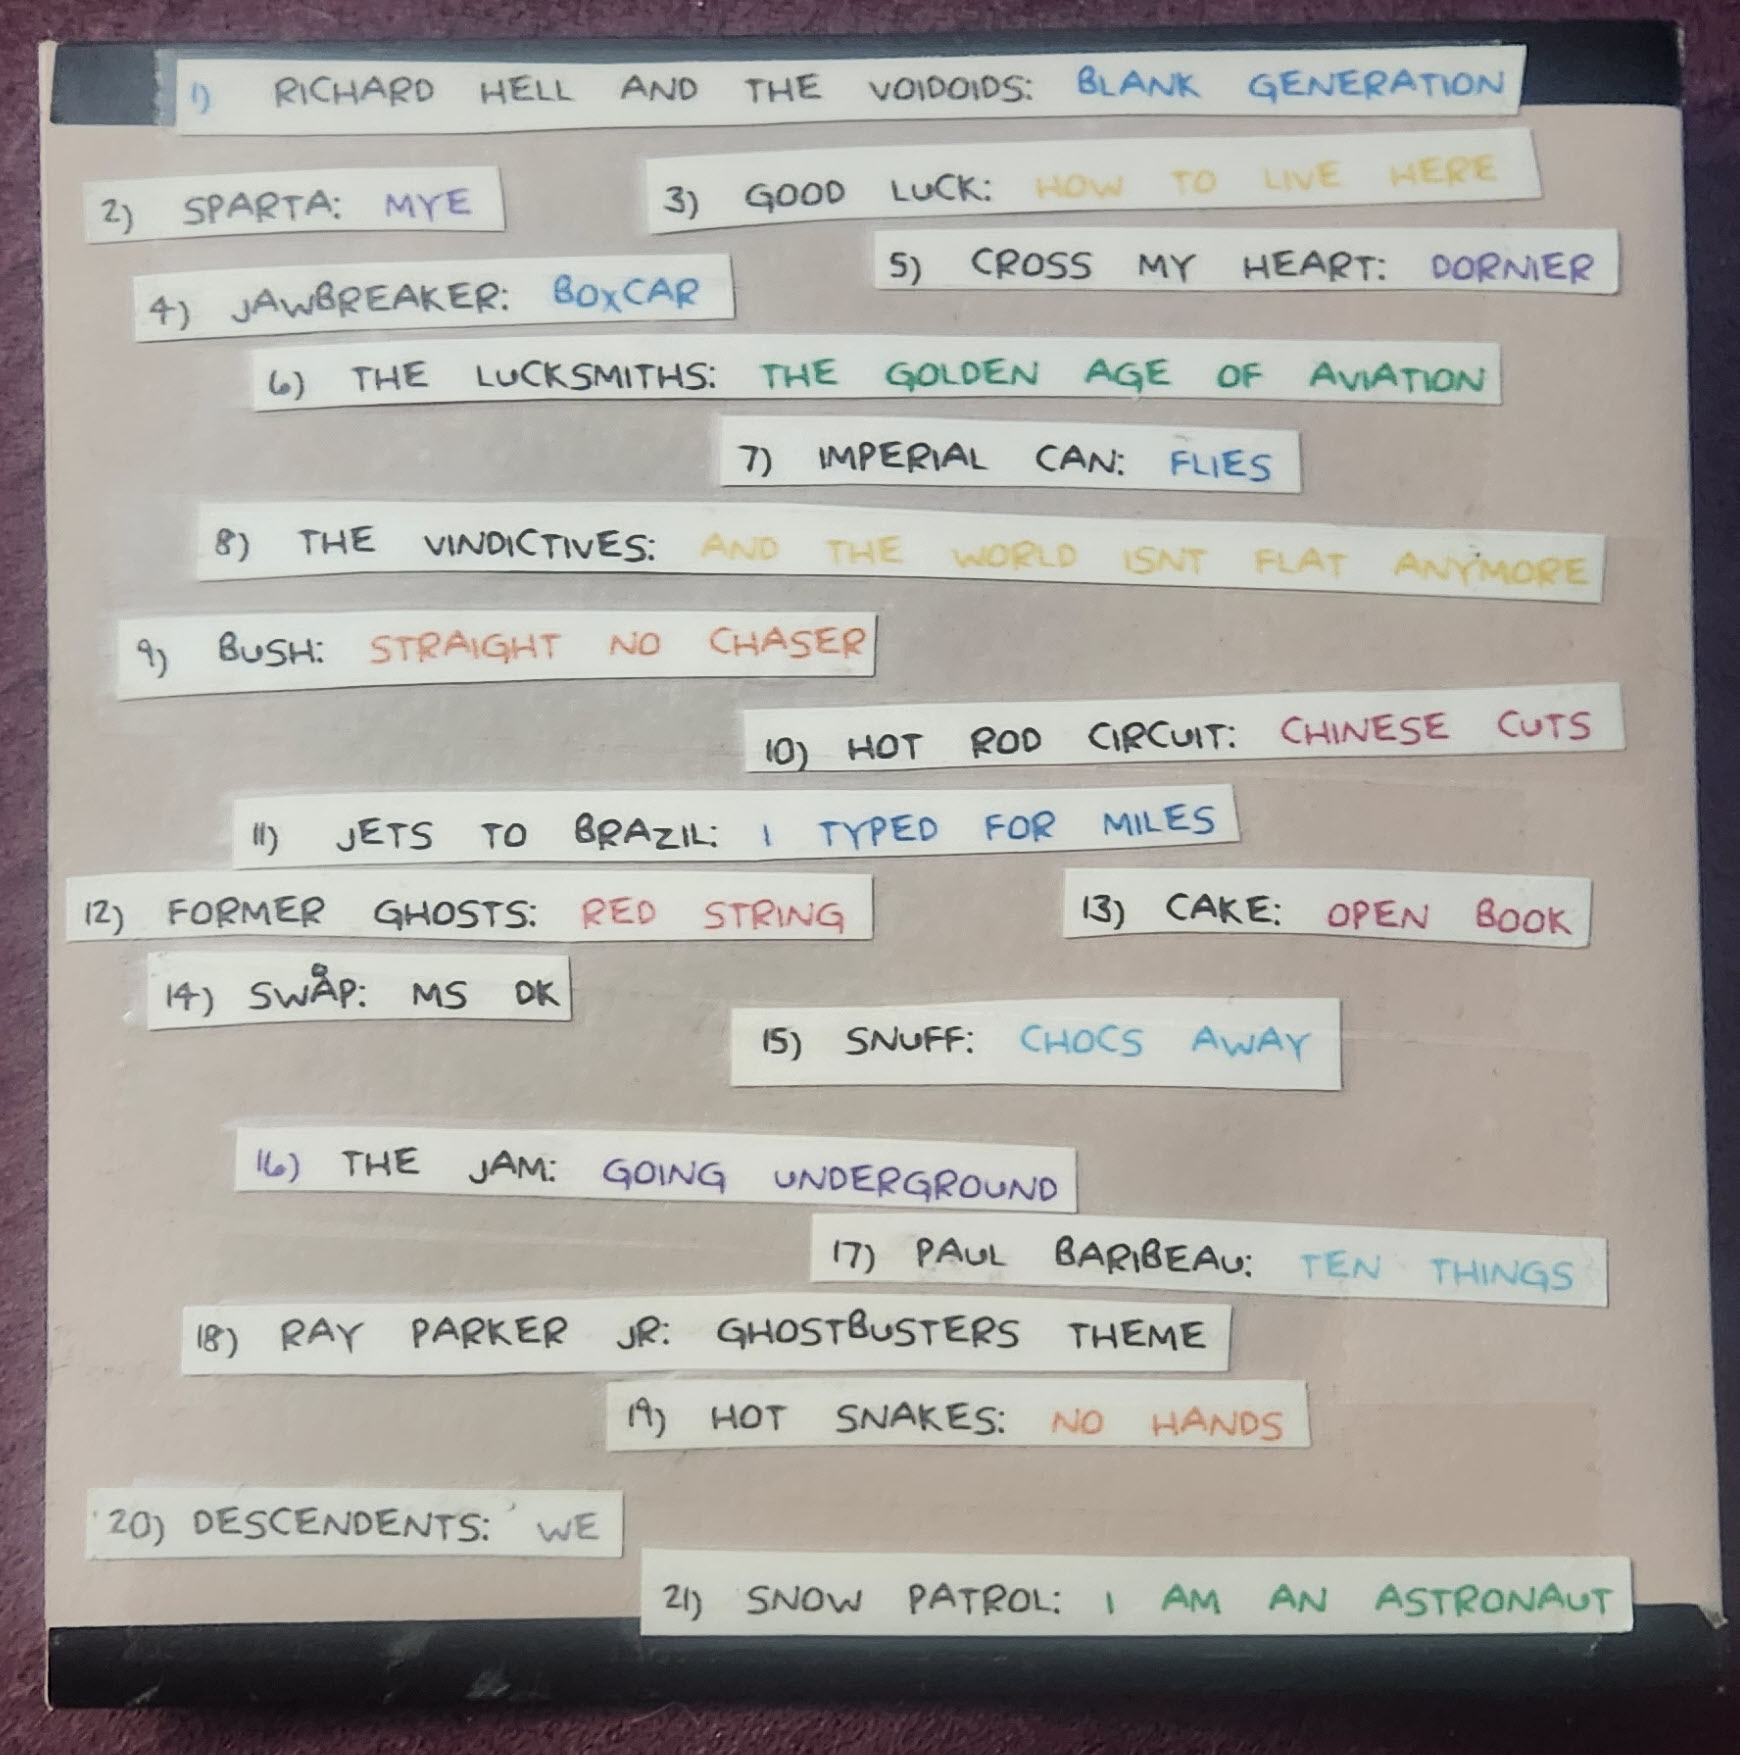 1) RICHARD HELL AND THE VOIDOIDS: BLANK GENERATION
2) SPARTA: MYE
3) GOOD LUCK: HOW TO LIVE HERE
4) JAWBREAKER: BOXCAR
5) CROSS MY HEART: DORNIER
6) THE LUCKSMITHS: THE GOLDEN AGE OF AVIATION
7) IMPERIAL CAN: FLIES
8) THE VINDICTIVES: AND THE WORLD ISNT FLAT ANYMORE
9) BUSH: STRAIGHT NO CHASER
10) HOT ROD CIRCUIT: CHINESE CUTS
11) JETS TO BRAZIL: I TYPED FOR MILES
12) FORMER GHOSTS: RED STRING
13) CAKE: OPEN BOOK
14) SWÅP: MS DK
15) SNUFF: CHOCS AWAY
16) THE JAM: GOING UNDERGROUND
17) PAUL BARIBEAU: TEN THINGS
18) RAY PARKER JR: GHOSTBUSTERS THEME
19) HOT SNAKES: NO HANDS
20) DESCENDENTS: WE
21) SNOW PATROL: I AM AN ASTRONAUT